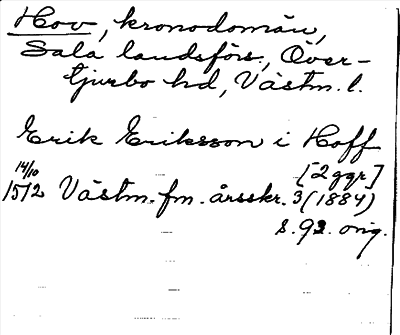 Hov, kronodomän,
Sala landsförs., Över-
tjurbo hd, Västm. l.
Erik Eriksson i Hoff
14/10 [2 ggr]
1512 Västm. fm. årsskr. 3 (1884)
s. 92. orig.